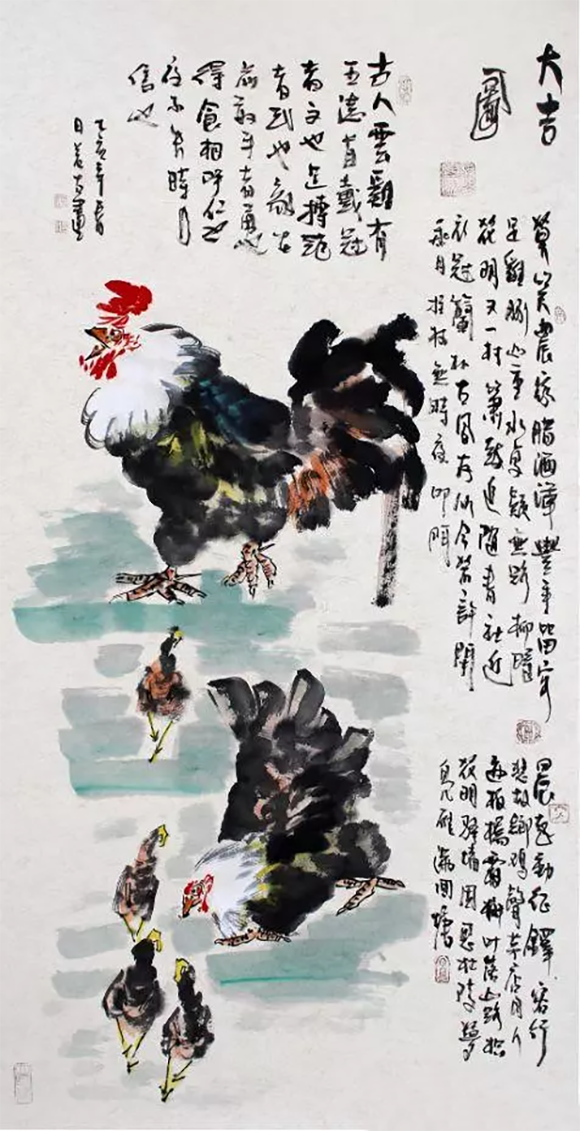 大吉
圖
莫笑農家臘酒渾豐年留客
足雞豚山重水復疑無路柳暗
花明又一村簫鼓追隨春社近
衣冠簡朴古風存從今若許閑
乘月拄杖無時夜叩門
晨起動征鐸客行
悲故鄉鸡聲茅店月人
迹板橋霜槲叶落山路枳
花明驛墻因思杜陵夢
鳧雁滿回塘
古人雲雞有
五德首戴冠
者文也足搏距
者武也敵在
前敢斗者勇也
得食相呼仁也
夜不失時
信也
乙亥年